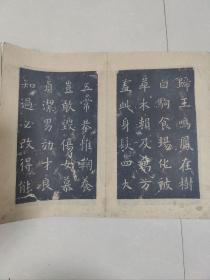 歸王鳴鳳在樹
白駒食場化被
草木賴及萬方
蓋此身髮四大
五常恭惟鞠養
豈敢毀傷女慕
貞潔男効才良
知過必改得能